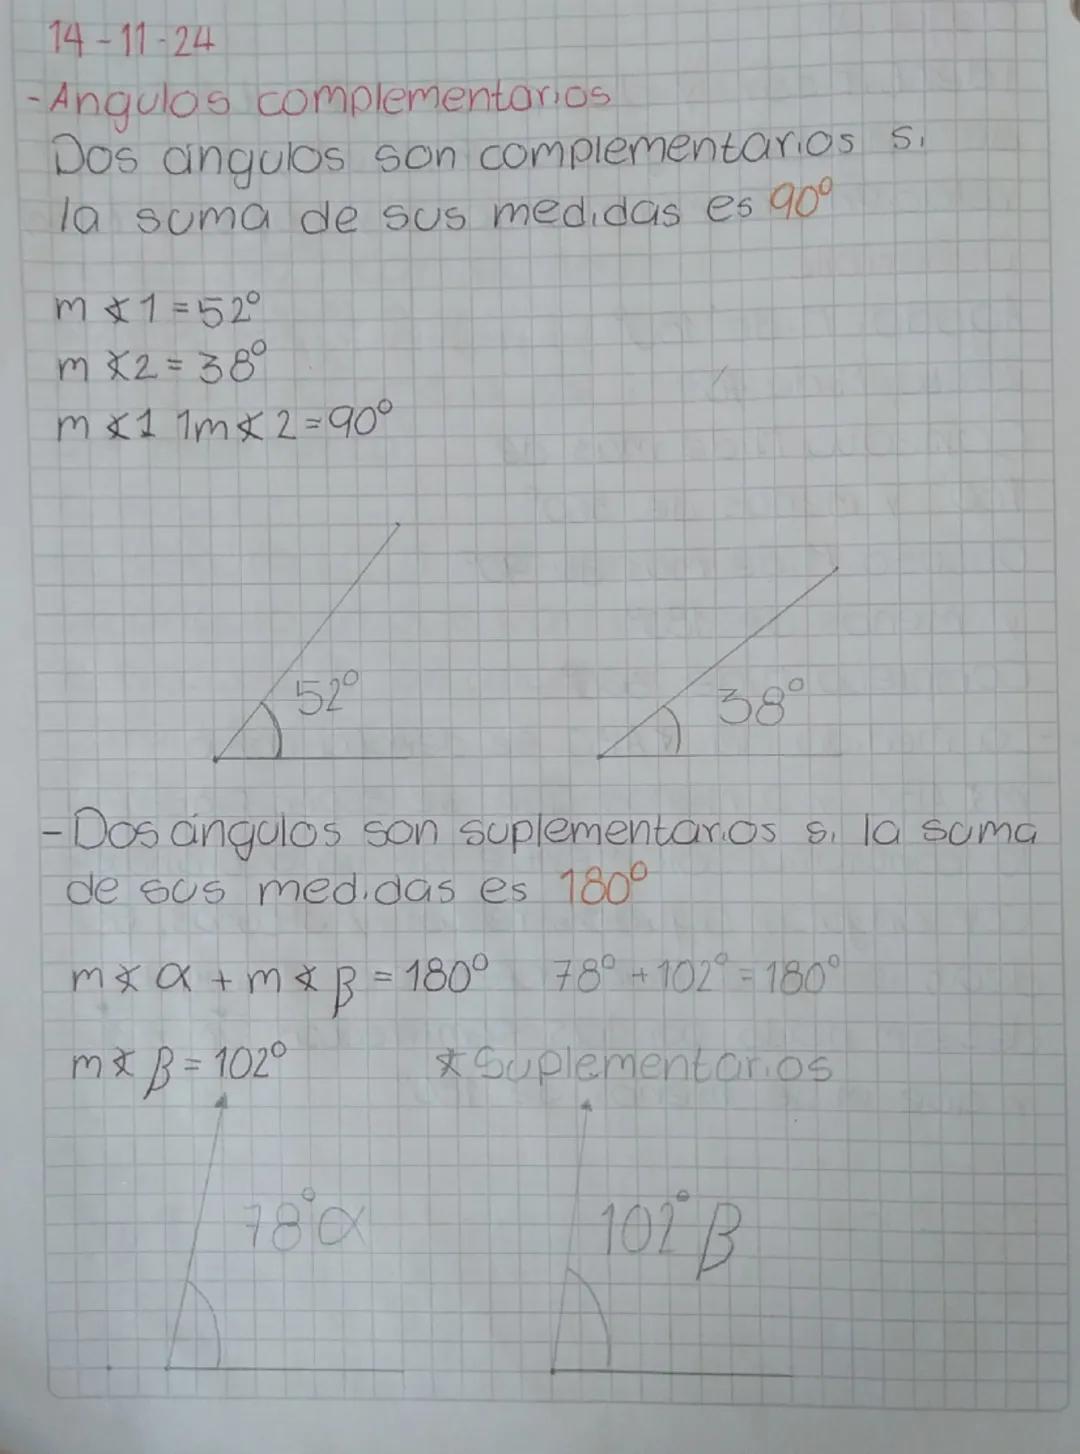 14-11-24
-Angulos complementarios
Dos ángulos son complementarios si
la suma de sus medidas es 90°
m∡1=52°
m∡2=38°
m∡1 1m∡2=90°
52°
38°
-Dos ángulos son suplementarios si la suma
de sus medidas es 180°
m∡α+m∡β=180° 78°+102°=180°
m∡β=102° *Suplementarios
78°α
102°β